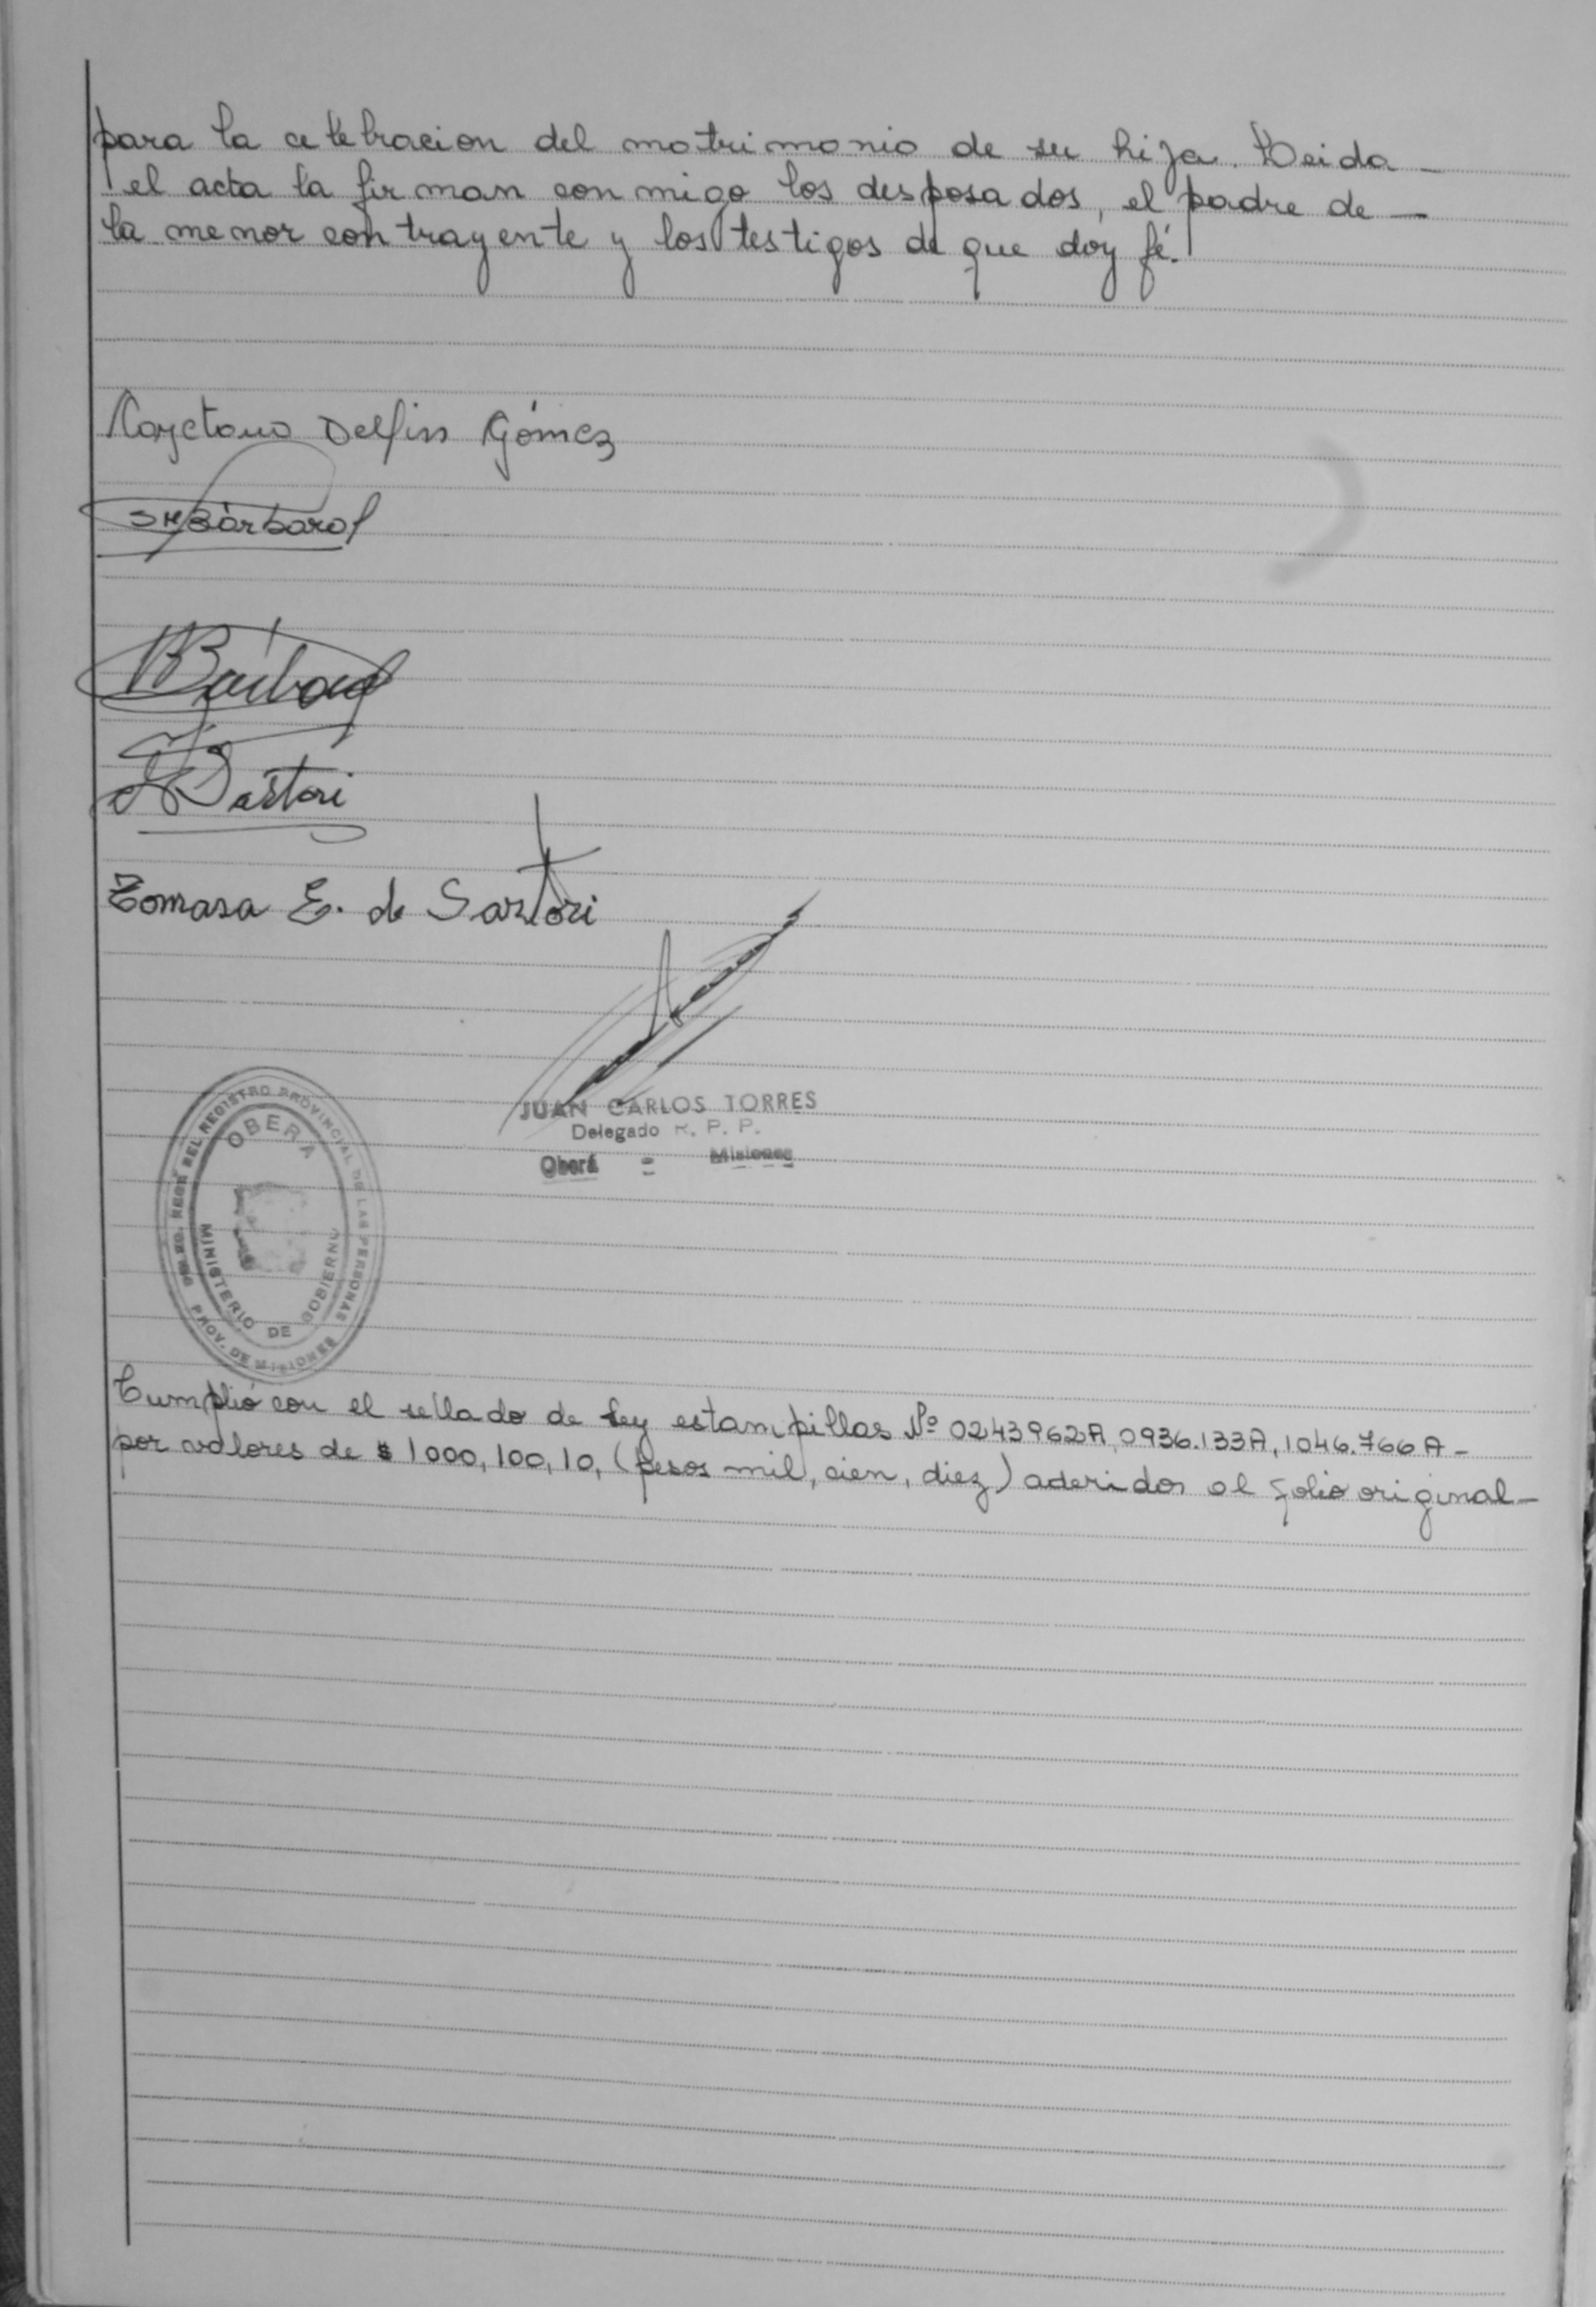 para la celebracion del matrimonio de su hija. Leida —
el acta la firman conmigo los desposados, el padre de —
la menor contrayente y los testigos de que doy fé.
Cayetano Delfin Gómez
SMBárbaro
Bárbaro
Sartori
Tomasa E. de Sartori
JUAN CARLOS TORRES
Delegado R. P. P.
Oberá - Misiones
REGISTRO PROVINCIAL DE LAS PERSONAS
OBERA
MINISTERIO DE GOBIERNO
PROV. DE MISIONES
Cumplió con el sellado de Ley estampillas Nº 0243962A, 0936.133A, 1046.766A —
por valores de $ 1000, 100, 10, (pesos mil, cien, diez) aderidos al folio original —